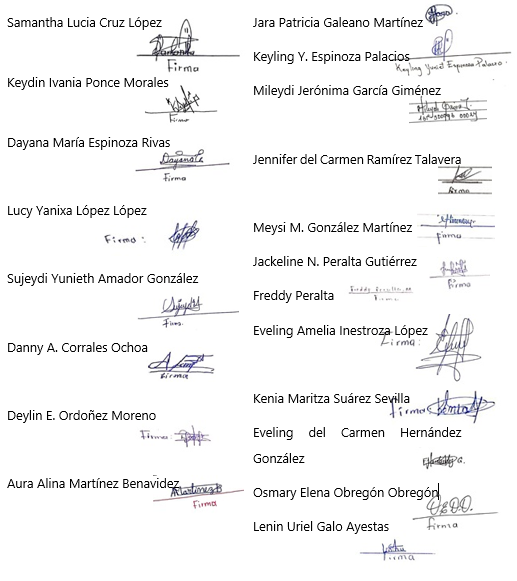 Samantha Lucia Cruz López
Firma
Keydin Ivania Ponce Morales
Firma
Dayana María Espinoza Rivas
Dayana
Firma
Lucy Yanixa López López
Firma:
Sujeydi Yunieth Amador González
Sujeydi
Firma
Danny A. Corrales Ochoa
Firma
Deylin E. Ordoñez Moreno
Firma
Aura Alina Martínez Benavidez
AMartinezB
Firma
Jara Patricia Galeano Martínez
Keyling Y. Espinoza Palacios
Keyling Espinoza Palacios
Mileydi Jerónima García Giménez
Jennifer del Carmen Ramírez Talavera
Firma
Meysi M. González Martínez
Firma
Jackeline N. Peralta Gutiérrez
Firma
Freddy Peralta
Freddy Peralta
Firma
Eveling Amelia Inestroza López
Firma:
Kenia Maritza Suárez Sevilla
Firma
Eveling del Carmen Hernández
González
Osmary Elena Obregón Obregón
O.E.O.O.
Firma
Lenin Uriel Galo Ayestas
Firma